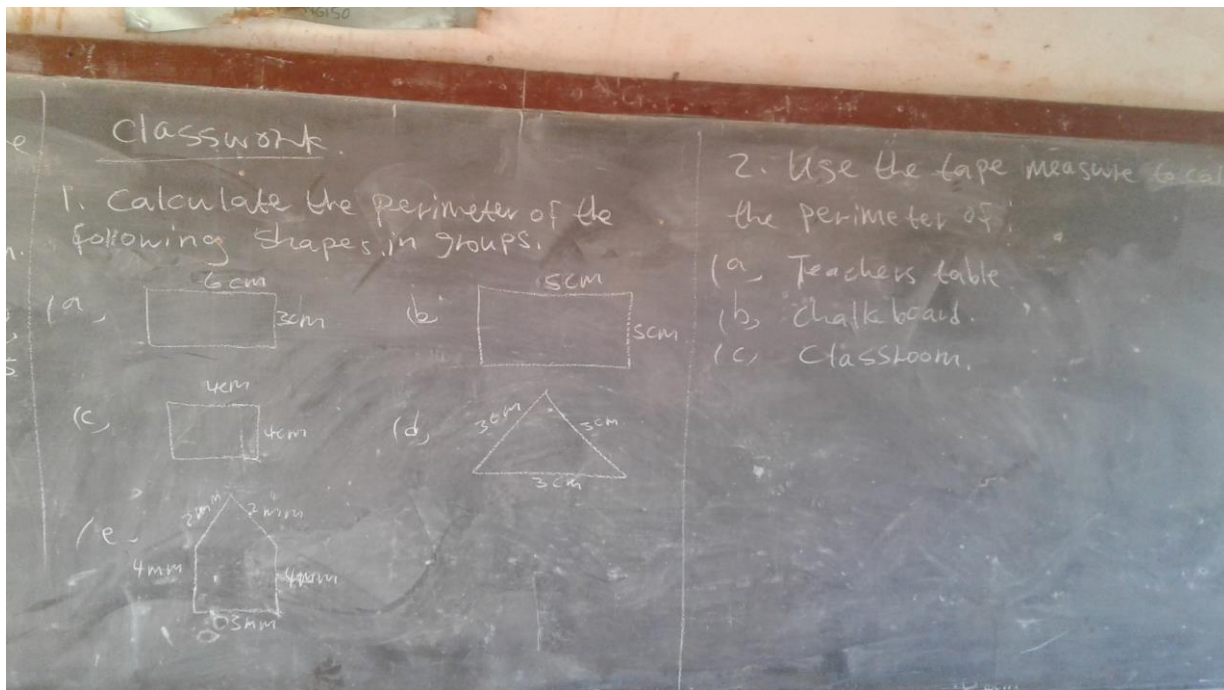 Classwork.
1. Calculate the perimeter of the
following shapes, in groups.
(a,
6cm
3cm
(b,
5cm
5cm
(c,
4cm
4cm
(d,
3cm
3cm
3cm
(e,
2mm
2mm
4mm
4mm
3mm
2. Use the tape measure to cal
the perimeter of:
(a, Teachers table
(b, Chalkboard.
(c, Classroom.